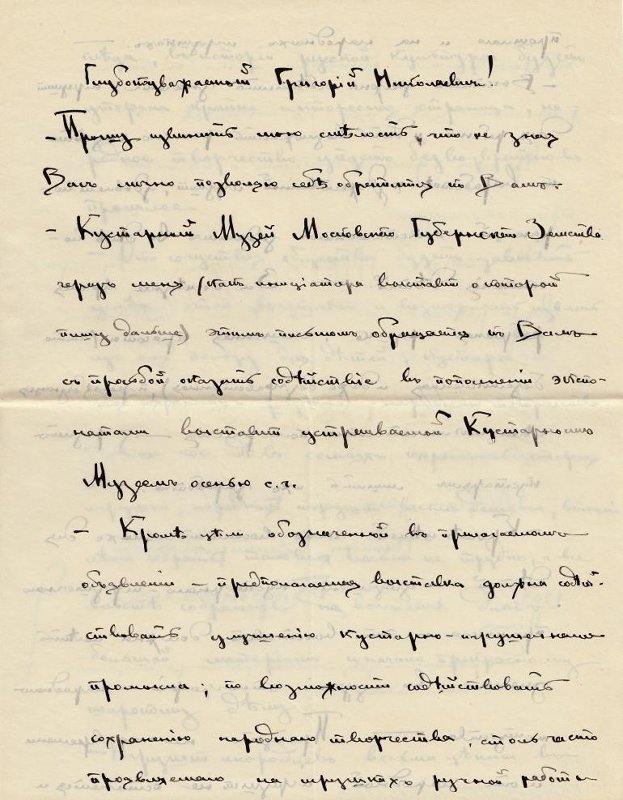 Глубокоуважаемый Григорій Николаевич!
– Прошу извинить мою смѣлость, что не зная
Васъ лично позволяю себѣ обратится къ Вамъ.
– Кустарный Музей Московскаго Губернскаго Земства
черезъ меня (какъ иниціатора выставки о которой
пишу дальше) этимъ письмомъ обращается къ Вамъ
съ просьбой оказать содѣйствіе въ пополненіи экспо-
натами выставки устраиваемой Кустарнымъ
Музеемъ осенью с.г.
– Кромѣ цѣли обозначенной въ прилагаемомъ
объявленіи – предполагаемая выставка должна содѣй-
ствовать улучшенію кустарно-игрушечнаго
промысла; по возможности содѣйствовать
сохраненію народнаго творчества, столь часто
на игрушкахъ ручной работы